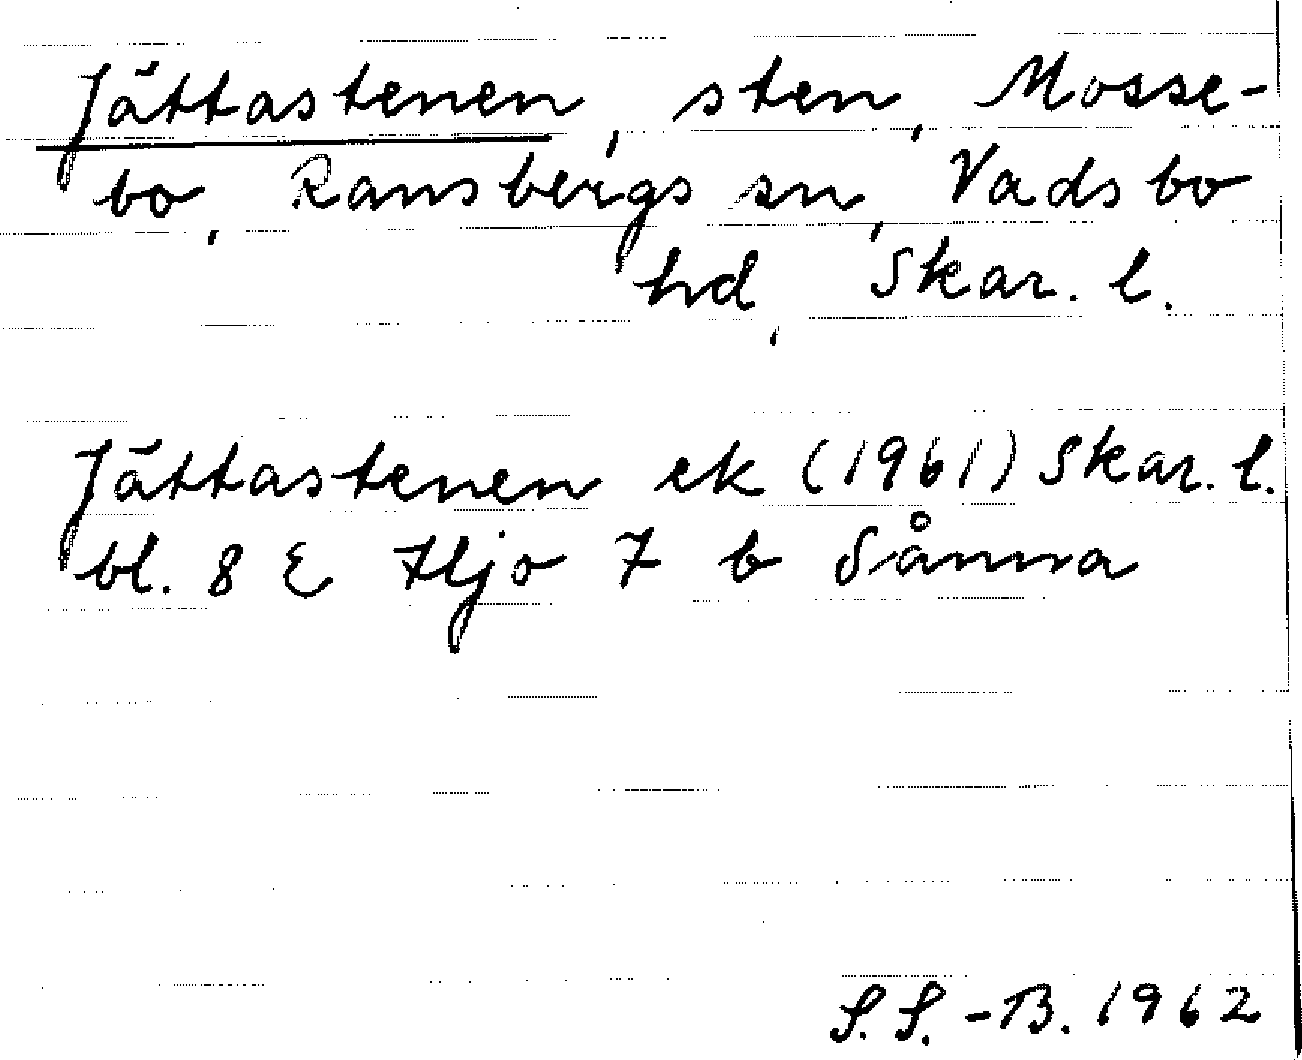 Jättastenen, sten, Mosse-
bo, Ransbergs sn, Vadsbo
hd, Skar. l.
Jättastenen ek (1961) Skar. l.
bl. 8 E Hjo 7 b Sånna
S. S. -B. 1962